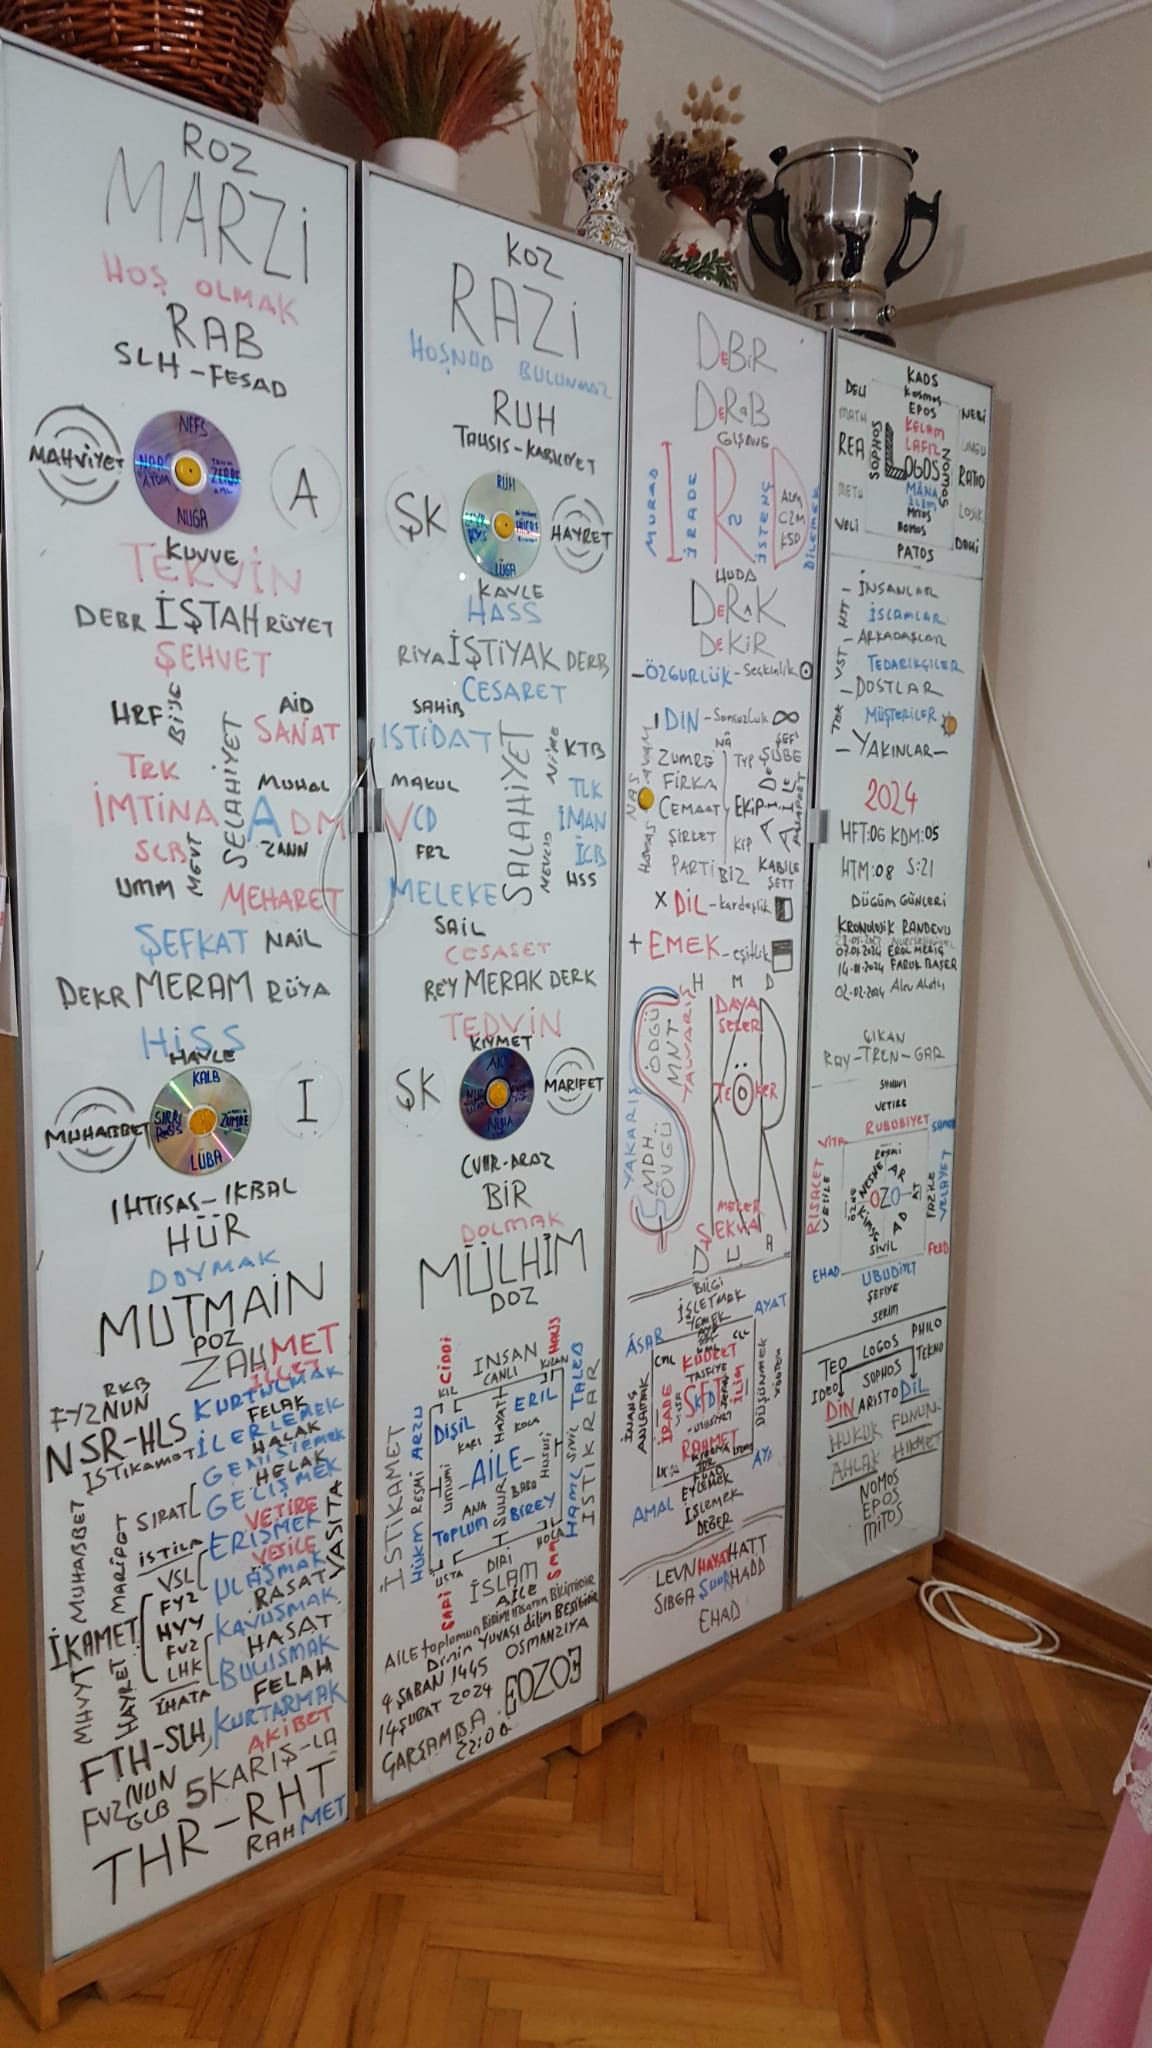 ROZ
MARZİ
HOŞ OLMAK
RAB
SLH-FESAD
MAHVİYET
NEFS
ZERRE
NUGA
A
KUVVE
TEKVİN
DEBR İŞTAH RÜYET
ŞEHVET
HRF
BİYE
AİD
SANAT
TRK
SELAHİYET
MUHAL
İMTİNA
ADMİN
SCB
MEVT
ZANN
UMM
MEHARET
ŞEFKAT NAİL
DEKR MERAM RÜYA
HİSS
HAVLE
MUHABBET
KALB
SIRRI
ZÜMRE
LÜBA
I
IHTISAS-IKBAL
HÜR
DOYMAK
MUTMAİN
POZ
ZAHMET
İLLET
RKB
FYZNUN
KURTULMAK
FELAK
NSR-HLS
İLERLEMEK
HALAK
İSTİKAMET
GENİŞLEMEK
HELAK
SIRAT
GELİŞMEK
VETİRE
İSTİLA
ERİŞMEK
VESİLE
VASITA
VSL
ULAŞMAK
RASAT
MUHABBET
MARİFET
İKAMET
FYZ
HYY
FVZ
LHK
KAVUŞMAK
HASAT
BULUŞMAK
MHVYT
HAYRET
İHATA
FELAH
FTH-SLH
KURTARMAK
AKİBET
FVZNUN
GLB
5KARIŞ-LA
THR-RHT
RAHMET
KOZ
RAZİ
HOŞNUD BULUNMAZ
RUH
TAHSIS-KABILIYET
ŞK
RUH
LÜGA
HAYRET
KAVLE
HASS
RİYA İŞTİYAK DERB
CESARET
SAHİB
ISTİDAT
SALAHİYET
NİME
KTB
MAKUL
TLK
CD
İMAN
FRZ
NEVCD
İCB
HSS
MELEKE
SAİL
CESASET
REY MERAK DERK
TEDVİN
KIYMET
ŞK
AKL
NUHA
MARIFET
CVHR-ARAZ
BİR
DOLMAK
MÜLHİM
DOZ
CİDDİ
INSAN
CANLI
HALİS
KIL
KILAN
TALEB
İSTİKAMET
HÜKM
RESMİ
ARZU
DİŞİL
HAYATİ
ERİL
KARI
KOCA
UMUMİ
-AİLE-
HUSUSİ
SİVİL
HAML
İSTİKRAR
ANA
BABA
TOPLUM
ŞUUR
BİREY
USTA
DİRİ
HOCA
İSLAM
AİLE
AİLE toplumun Birimi insanın Bilimidir
Dinin YUVASI dilin BEŞİĞİDİR
4 ŞABAN 1445 OSMANZIYA
14 ŞUBAT 2024
ÇARŞAMBA
22:00
EOZOE
DeBiR
DeRaB
GİŞAVE
MURAD
İRADE
R
İSTENÇ
AZM
CZM
KSD
DİLEMEK
HUDA
DeRAK
DeKİR
-ÖZGURLÜK-Seçkinlik
DIN-Sonsuzluk ∞
NAS
AVAM
ZUMRE
TYP
ŞUBE
FİRKA
CEMAAT
EKİP
ŞİRKET
KİP
HAVAS
PARTİ
BİZ
KABİLE
ŞETT
X DİL-kardeşlik
+ EMEK-eşitlik
H M D
YAKARIŞ
MDH
ÖVGÜ
ÖDGÜ
MNT
YALVARIŞ
DAYA
SELER
TEOKER
MELER
SEKHA
DUA
BİLGİ
İŞLETMEK
AYAT
ÂSAR
CML
CLL
KUDRET
TASFİYE
İNANÇ
ANLAMAK
İRADE
SFT
İLİM
DÜŞÜNMEK
RAHMET
AMAL
EYLEMEK
İŞLEMEK
DEĞER
LEVN HAYAT HATT
SIBGA ŞUUR HADD
EHAD
KAOS
Kosmos
DELİ
EPOS
NEBİ
MATH
KELAM
LAFIZ
REA
SOPHOS
LOGOS
NOMOS
RATIO
MÂNA
METH
LOJİK
VELİ
DAHİ
PATOS
- İNSANLAR
İSLAMLAR
- ARKADAŞLAR
VST
TEDARİKÇİLER
-DOSTLAR
MÜŞTERİLER
-YAKINLAR-
2024
HFT:06 KDM:05
HTM:08 S:21
DüGüm GÜNLERİ
KRONOLOJİK RANDEVU
07.01.2024 EROL MERİÇ
14-11-2024 FARUK BAŞER
02-02-2024 Alev Alatlı
ÇIKAN
RAY-TREN-GAR
VETİRE
RUBUBİYET
VİTR
RİSALET
VESİLE
RESMİ
NESNE
AR
OZO
AT
KİMSE
AD
SİVİL
FAZİLE
VELAYET
FERD
EHAD
UBUDİYET
ŞEFİYE
SERİM
TEO
LOGOS
PHILO
IDEO
SOPHOS
TEKNO
DİN
ARİSTO
DİL
HUKUK
FUNUN
AHLAK
HİKMET
NOMOS
EPOS
MİTOS